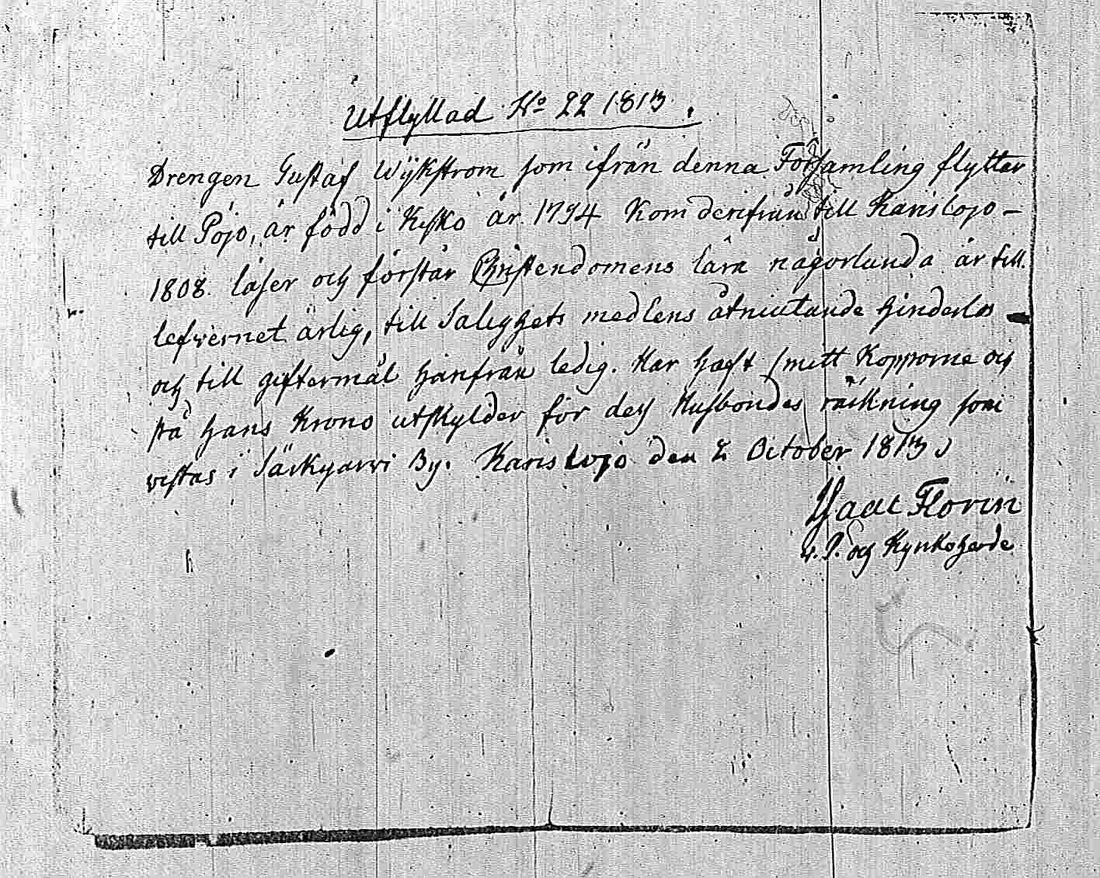 Utflyttad No 22 1813.
Drengen Gustaf Wijkstrom som ifrån denna Församling flyttar
till Pojo, är född i Kisko år 1794 Kom derifrån till Karislojo –
1808. läser och förstår Christendomens lära någorlunda är till
lefvernet ärlig, till Salighets medlens åtniutande hinderlös
och till giftermål härifrån ledig. Har haft smitt Kopporne och
på hans Krono utskylder för dess Husbondes räkning som
vistas i Särkjarvi By. Karislojo den 2 October 1813
Isaac Florin
v. P. och Kyrkoherde